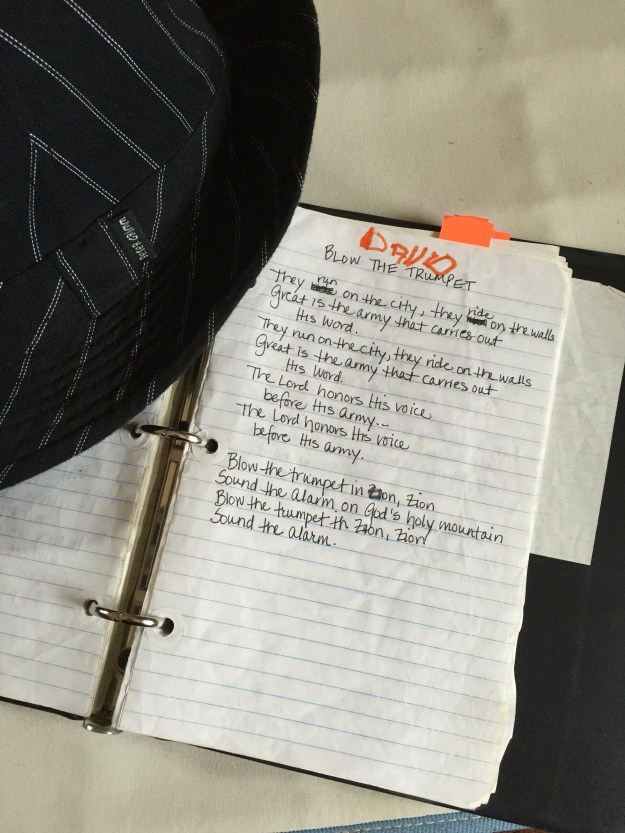 DAVID
BLOW THE TRUMPET
They run on the city, they ride on the walls
Great is the army that carries out
His Word.
They run on the city, they ride on the walls
Great is the army that carries out
His Word.
The Lord honors His voice
before His army...
The Lord honors His voice
before His army.
Blow the trumpet in Zion, Zion
Sound the alarm on God's holy mountain
Blow the trumpet in Zion, Zion
Sound the alarm.